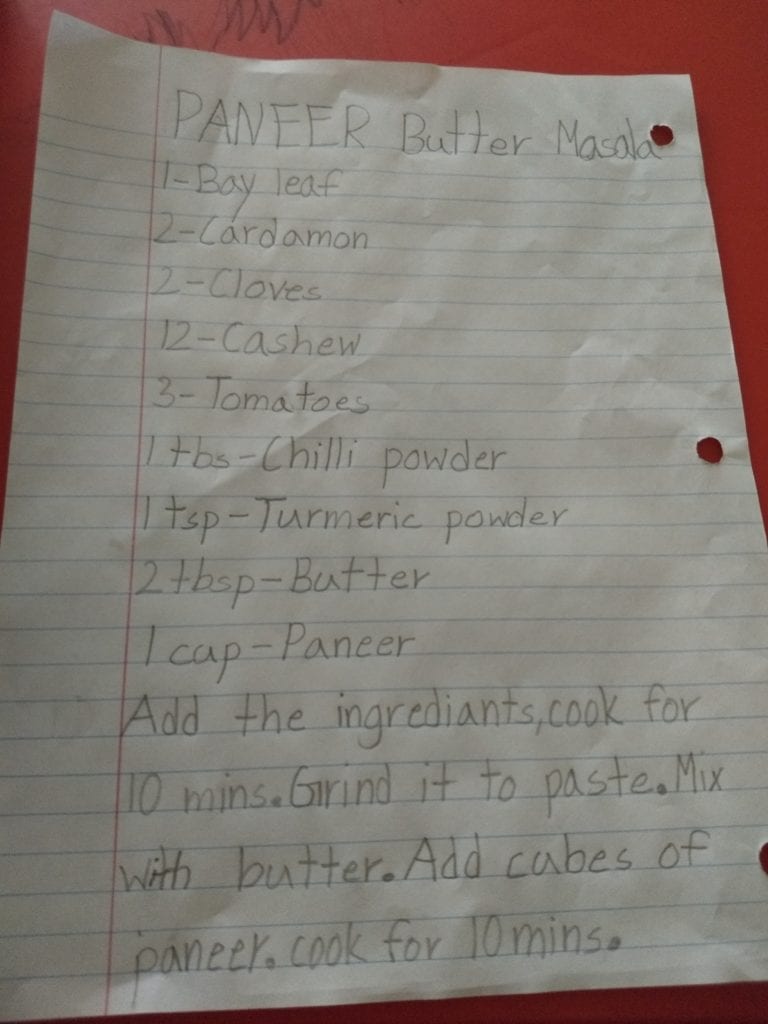 PANEER Butter Masala
1-Bay leaf
2-Cardamon
2-Cloves
12-Cashew
3-Tomatoes
1 tbs-Chilli powder
1 tsp-Turmeric powder
2 tbsp-Butter
1 cap-Paneer
Add the ingrediants,cook for
10 mins.Grind it to paste.Mix
with butter.Add cubes of
paneer.cook for 10mins.